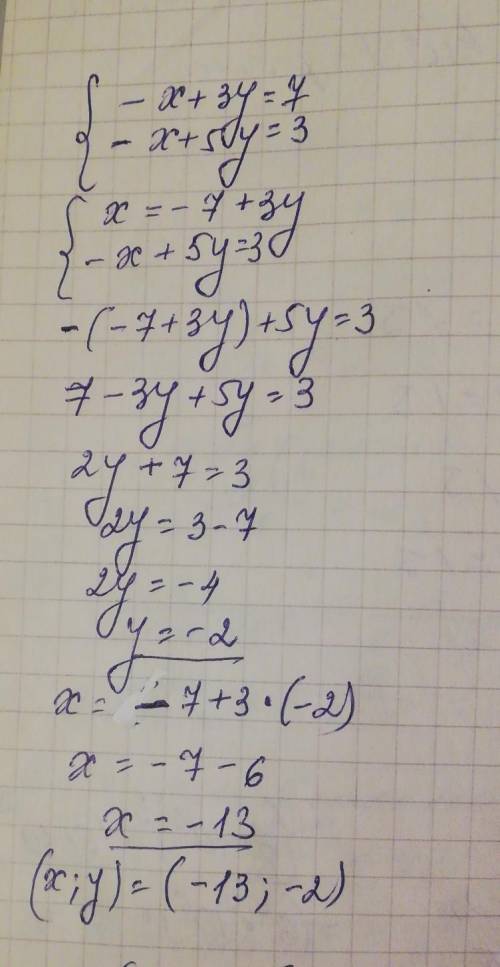 { - x + 3y = 7
- x + 5y = 3
{ x = - 7 + 3y
- x + 5y = 3
- (- 7 + 3y) + 5y = 3
7 - 3y + 5y = 3
2y + 7 = 3
2y = 3 - 7
2y = - 4
y = - 2
x = - 7 + 3 · (- 2)
x = - 7 - 6
x = - 13
(x; y) = (- 13; - 2)